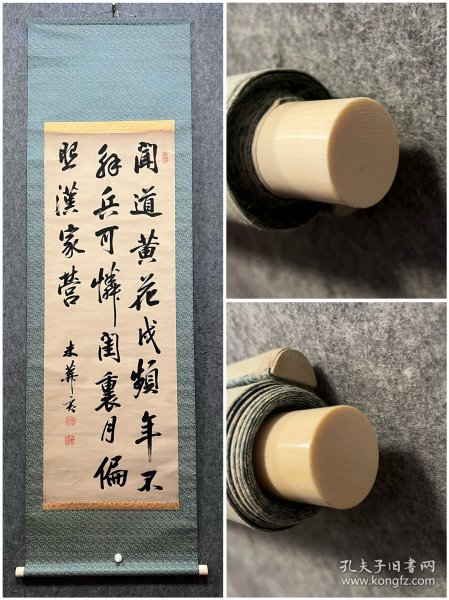 聞道黄花戍頻年不
解兵可憐閨裏月偏
照漢家營
米華京
孔夫子旧书网
www.kongfz.com